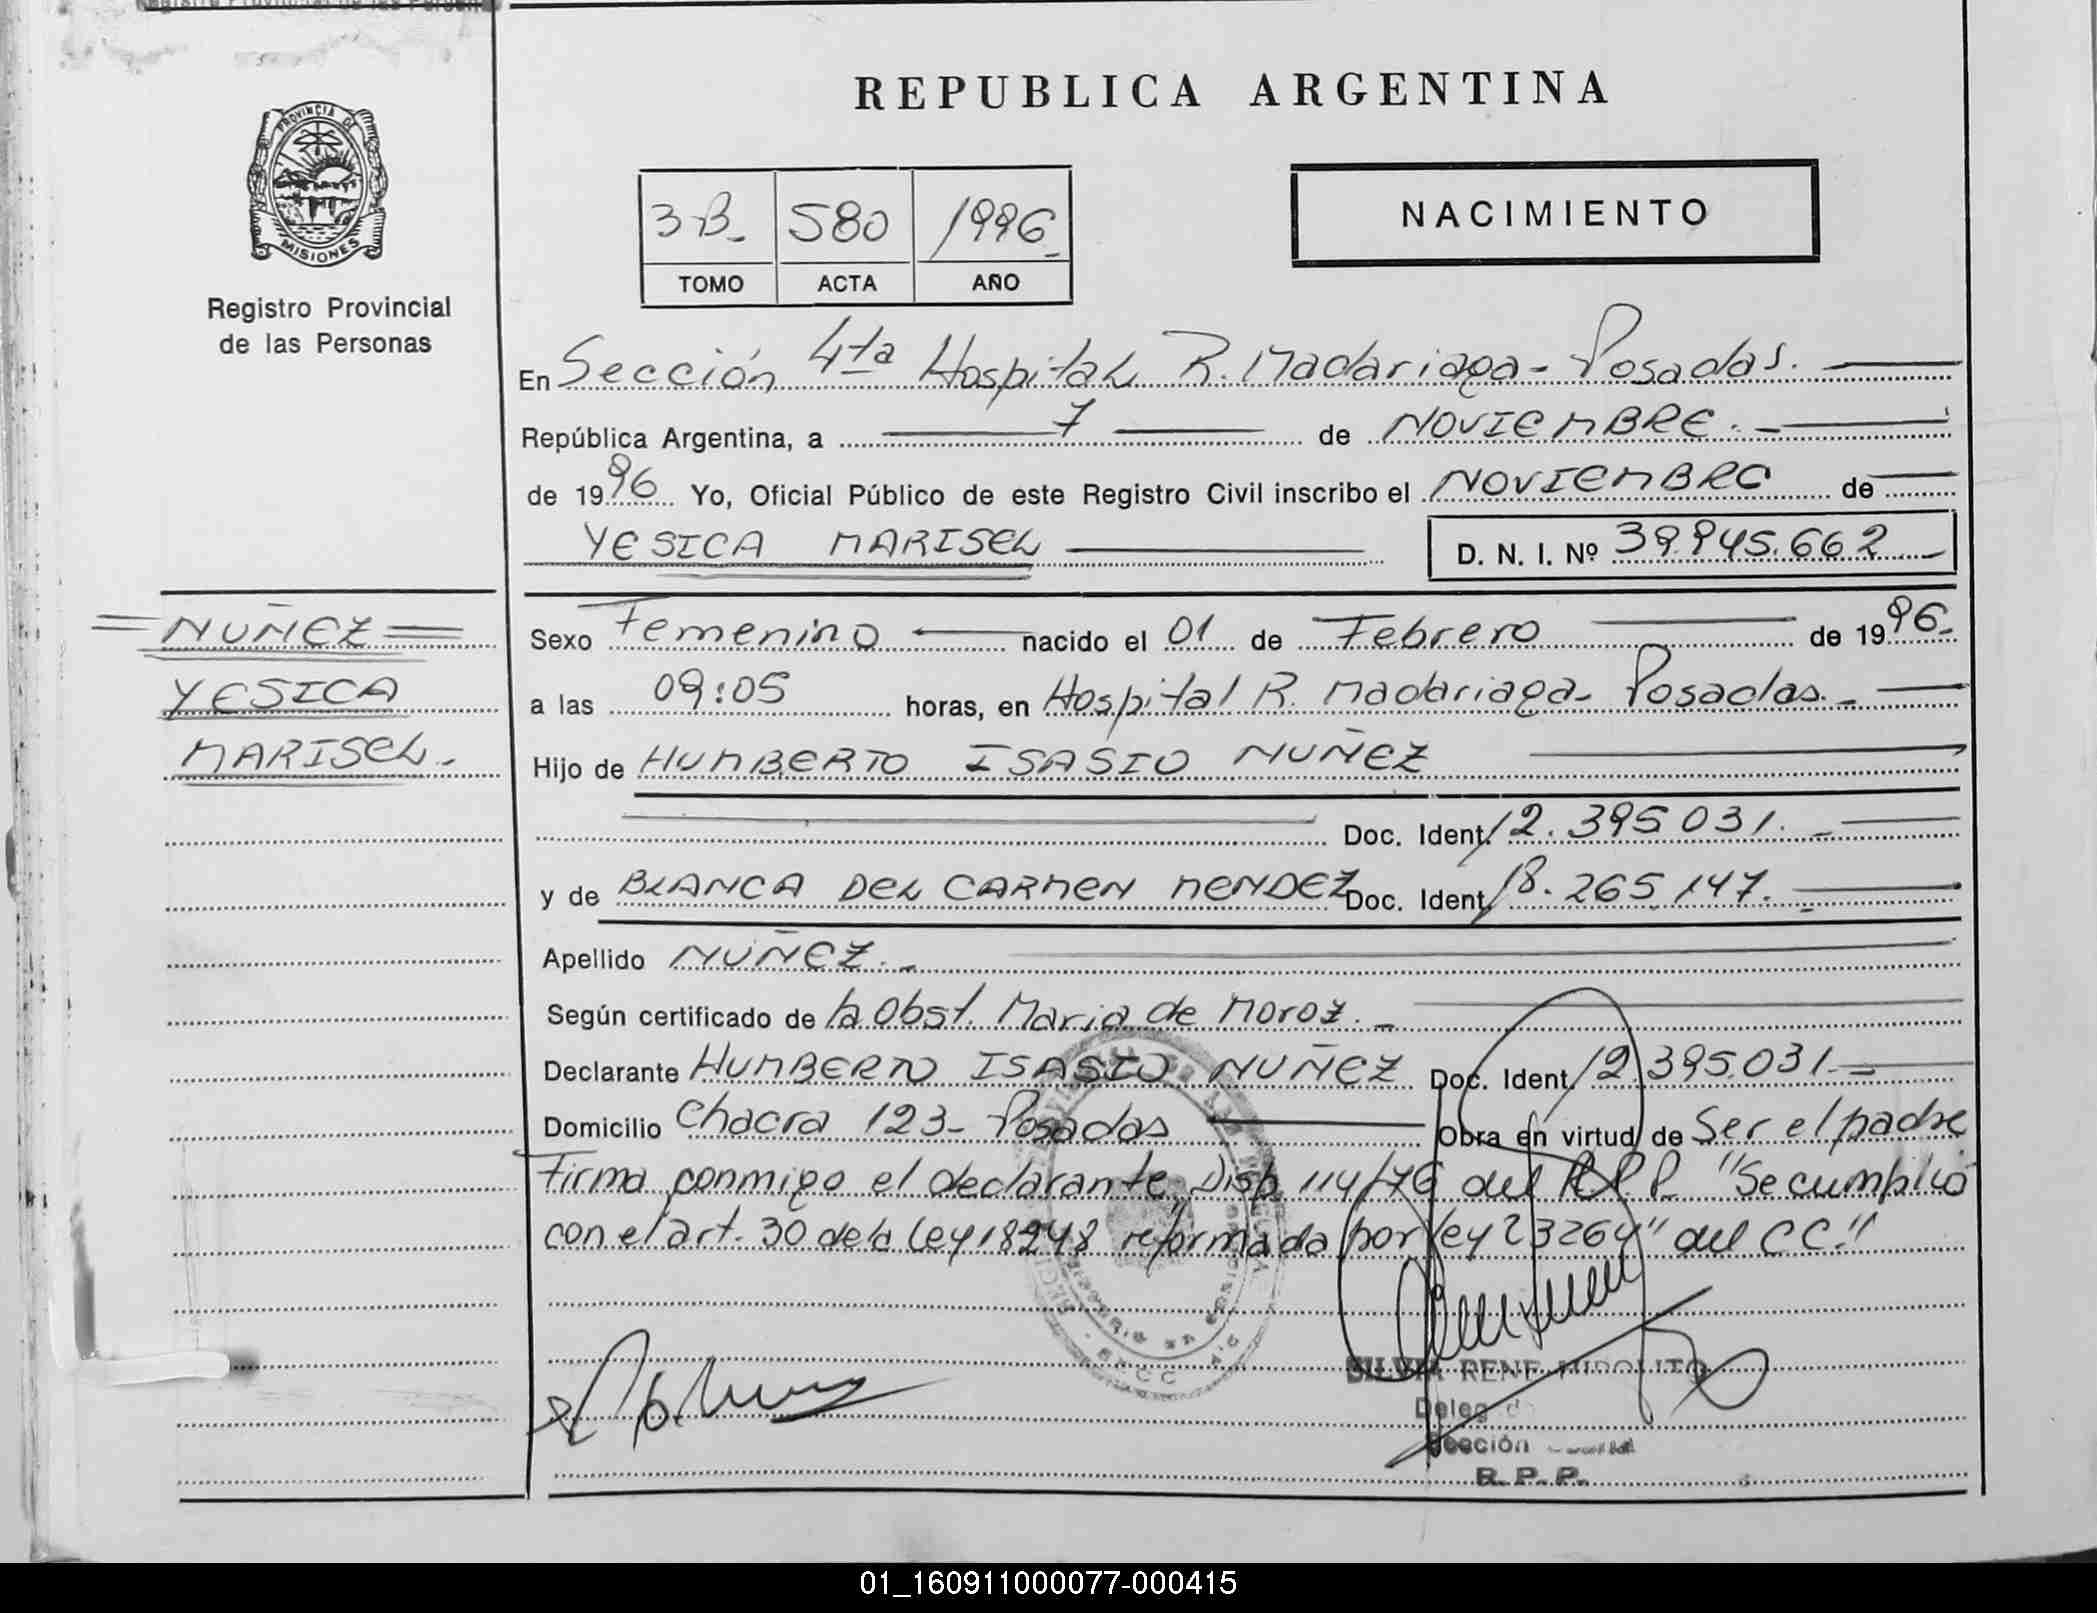 PROVINCIA DE
MISIONES
Registro Provincial
de las Personas
REPUBLICA ARGENTINA
3-B- 580 1996-
TOMO ACTA AÑO
NACIMIENTO
En Sección 4ta Hospital R. Madariaga - Posadas.
República Argentina, a 7 de NOVIEMBRE.-
de 1996 Yo, Oficial Público de este Registro Civil inscribo el NOVIEMBRE de
YESICA MARISEL
D. N. I. Nº 39.945.662
NUÑEZ
YESICA
MARISEL.-
Sexo Femenino nacido el 01 de Febrero de 1996-
a las 09:05 horas, en Hospital R. Madariaga- Posadas.-
Hijo de HUMBERTO ISASIO NUÑEZ
Doc. Ident. 12.395.031.-
y de BLANCA DEL CARMEN MENDEZ Doc. Ident. 18.265.147.-
Apellido NUÑEZ.-
Según certificado de la Obst. Maria de Moroz.-
Declarante HUMBERTO ISASIO NUÑEZ Doc. Ident. 12.395.031.-
Domicilio Chacra 123- Posadas Obra en virtud de Ser el padre
Firma conmigo el declarante, Disp. 114/76 del R.P.P. "Se cumplió
con el art. 30 de la Ley 18248 reformada por ley 23264" del CC."
SILVIA RENE
Sección
R. P. P.
01_160911000077-000415